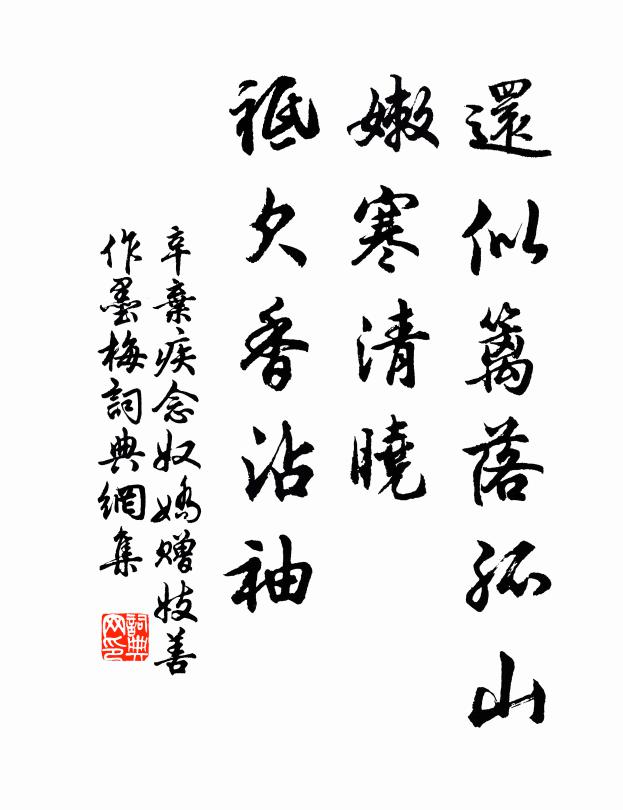 還似籬落孤山
嫩寒清曉
祗欠香沾袖
辛棄疾念奴嬌赠妓善
作墨梅詞典網集
詞典网印